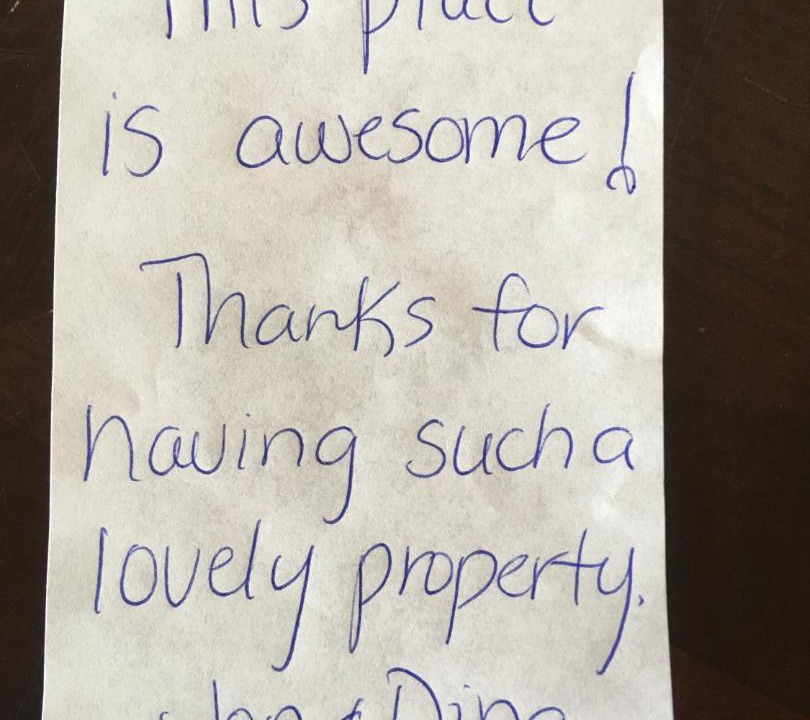 This place
is awesome!
Thanks for
having such a
lovely property.